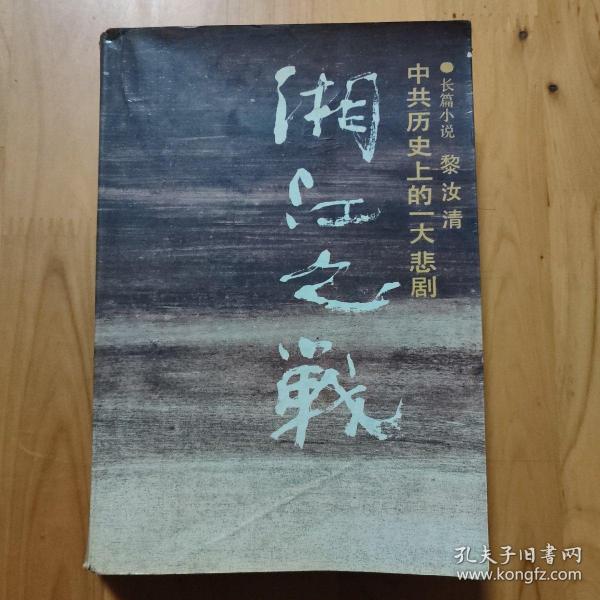 ●长篇小说 黎汝清
中共历史上的一大悲剧
湘江之戰
孔夫子旧书网
www.kongfz.com